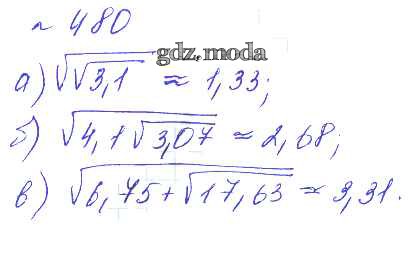 ~ 480
gdz.moda
а) √√3,1 ≈ 1,33;
б) √4,1√3,07 ≈ 2,68;
в) √6,75+√17,63 ≈ 3,31.